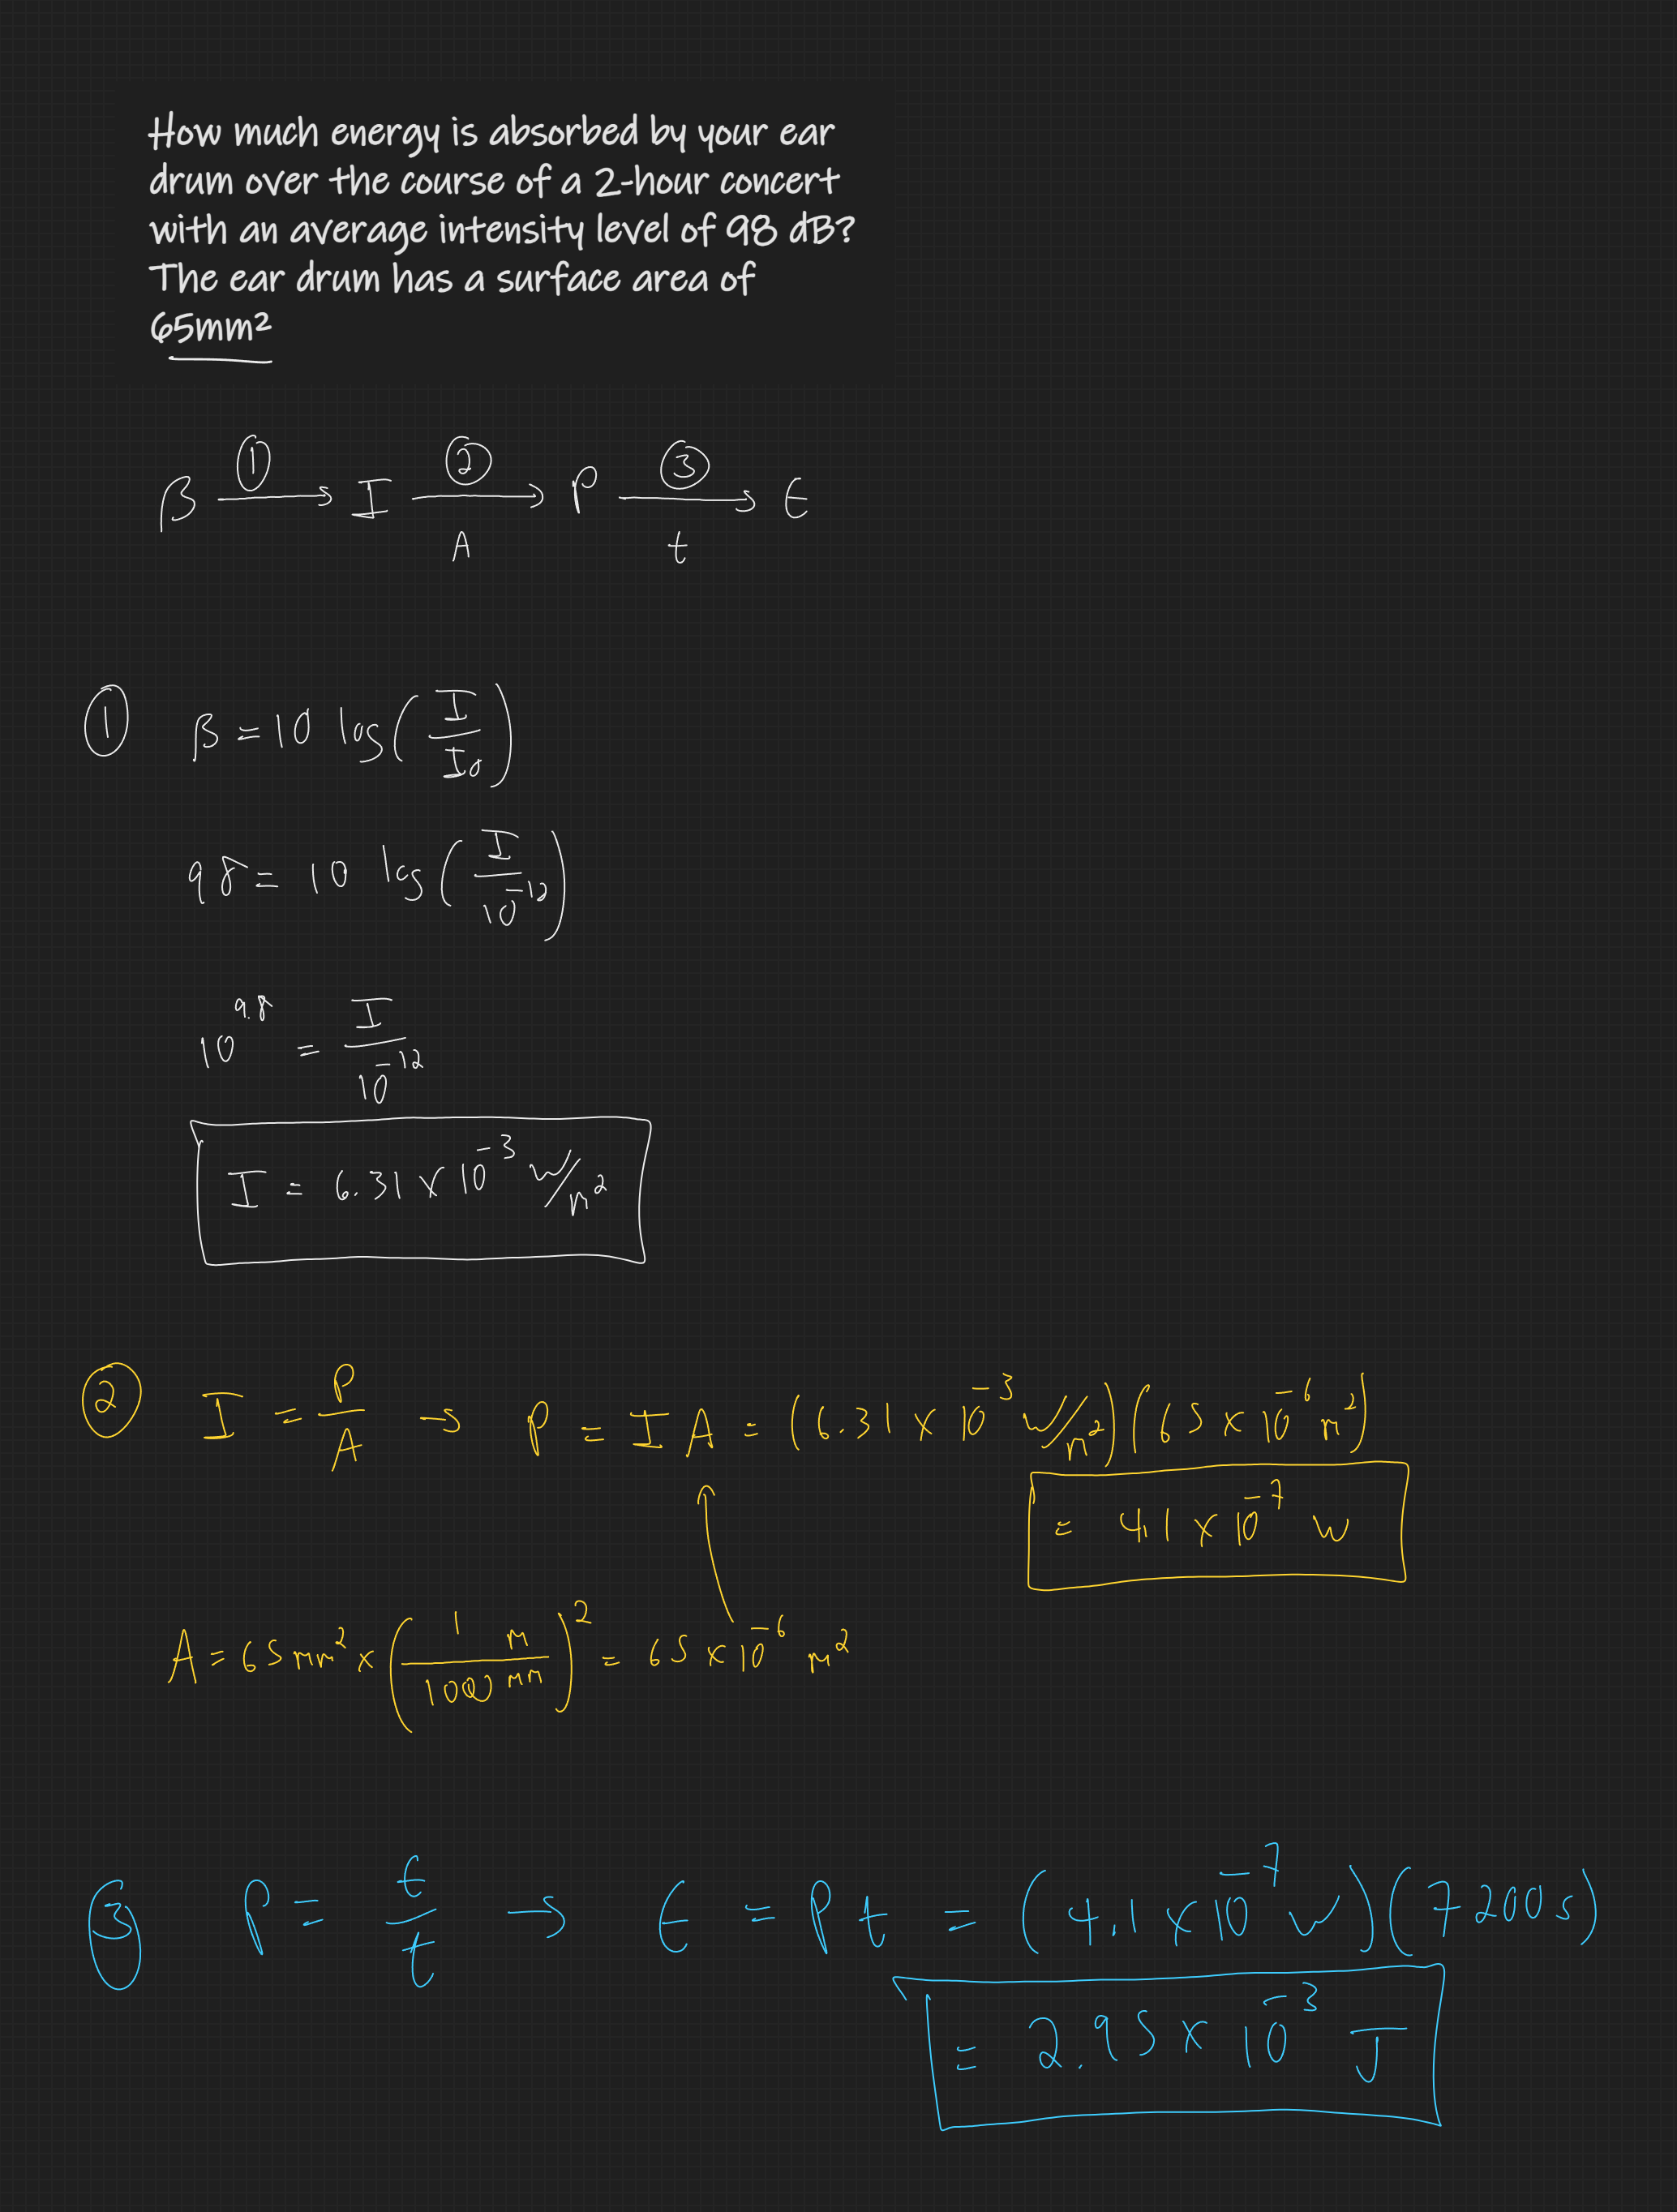 How much energy is absorbed by your ear
drum over the course of a 2-hour concert
with an average intensity level of 98 dB?
The ear drum has a surface area of
65mm²
β ①→ I ②→ P ③→ E
A t
① β = 10 log(I/I₀)
98 = 10 log(I/10⁻¹²)
10^9.8 = I/10⁻¹²
I = 6.31 × 10⁻³ W/m²
② I = P/A → P = I A = (6.31 × 10⁻³ W/m²)(65 × 10⁻⁶ m²)
= 4.1 × 10⁻⁷ W
A = 65 mm² × (1 m/1000 mm)² = 65 × 10⁻⁶ m²
③ P = E/t → E = P t = (4.1 × 10⁻⁷ W)(7200 s)
= 2.95 × 10⁻³ J